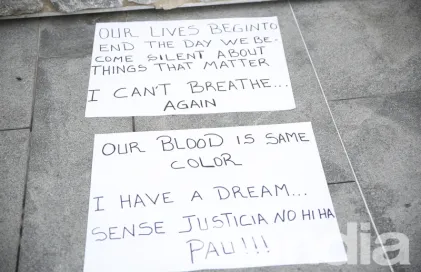 OUR LIVES BEGIN TO
END THE DAY WE BE-
COME SILENT ABOUT
THINGS THAT MATTER
I CAN'T BREATHE...
AGAIN
OUR BLOOD IS SAME
COLOR
I HAVE A DREAM...
SENSE JUSTICIA NO HI HA
PAU!!!
india